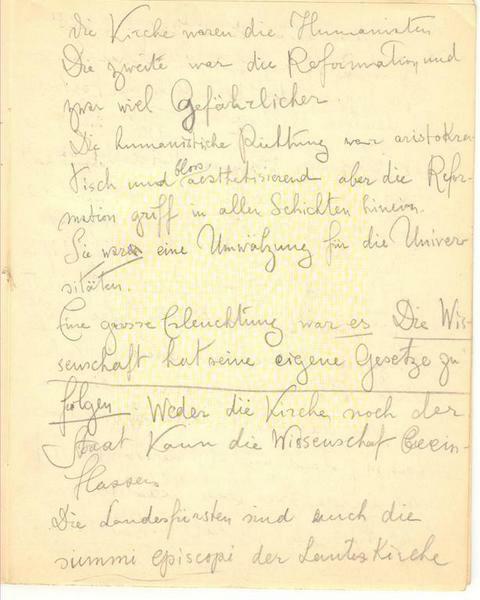 die Kirche waren die Humanisten
Die zweite war die Reformation und
zwar viel Gefährlicher.
Die humanistische Richtung war aristokra-
tisch und bloss aesthetisierend aber die Refor-
mation griff in allen Schichten hinein.
Sie war eine Umwälzung für die Univer
sitäten.
Eine grosse Erleuchtung war es Die Wis-
senschaft hat seine eigene Gesetze zu
folgen. Weder die Kirche noch der
Staat kann die Wissenschaf beein-
flussen
Die Landesfürsten sind auch die
summi episcopi der Landeskirche